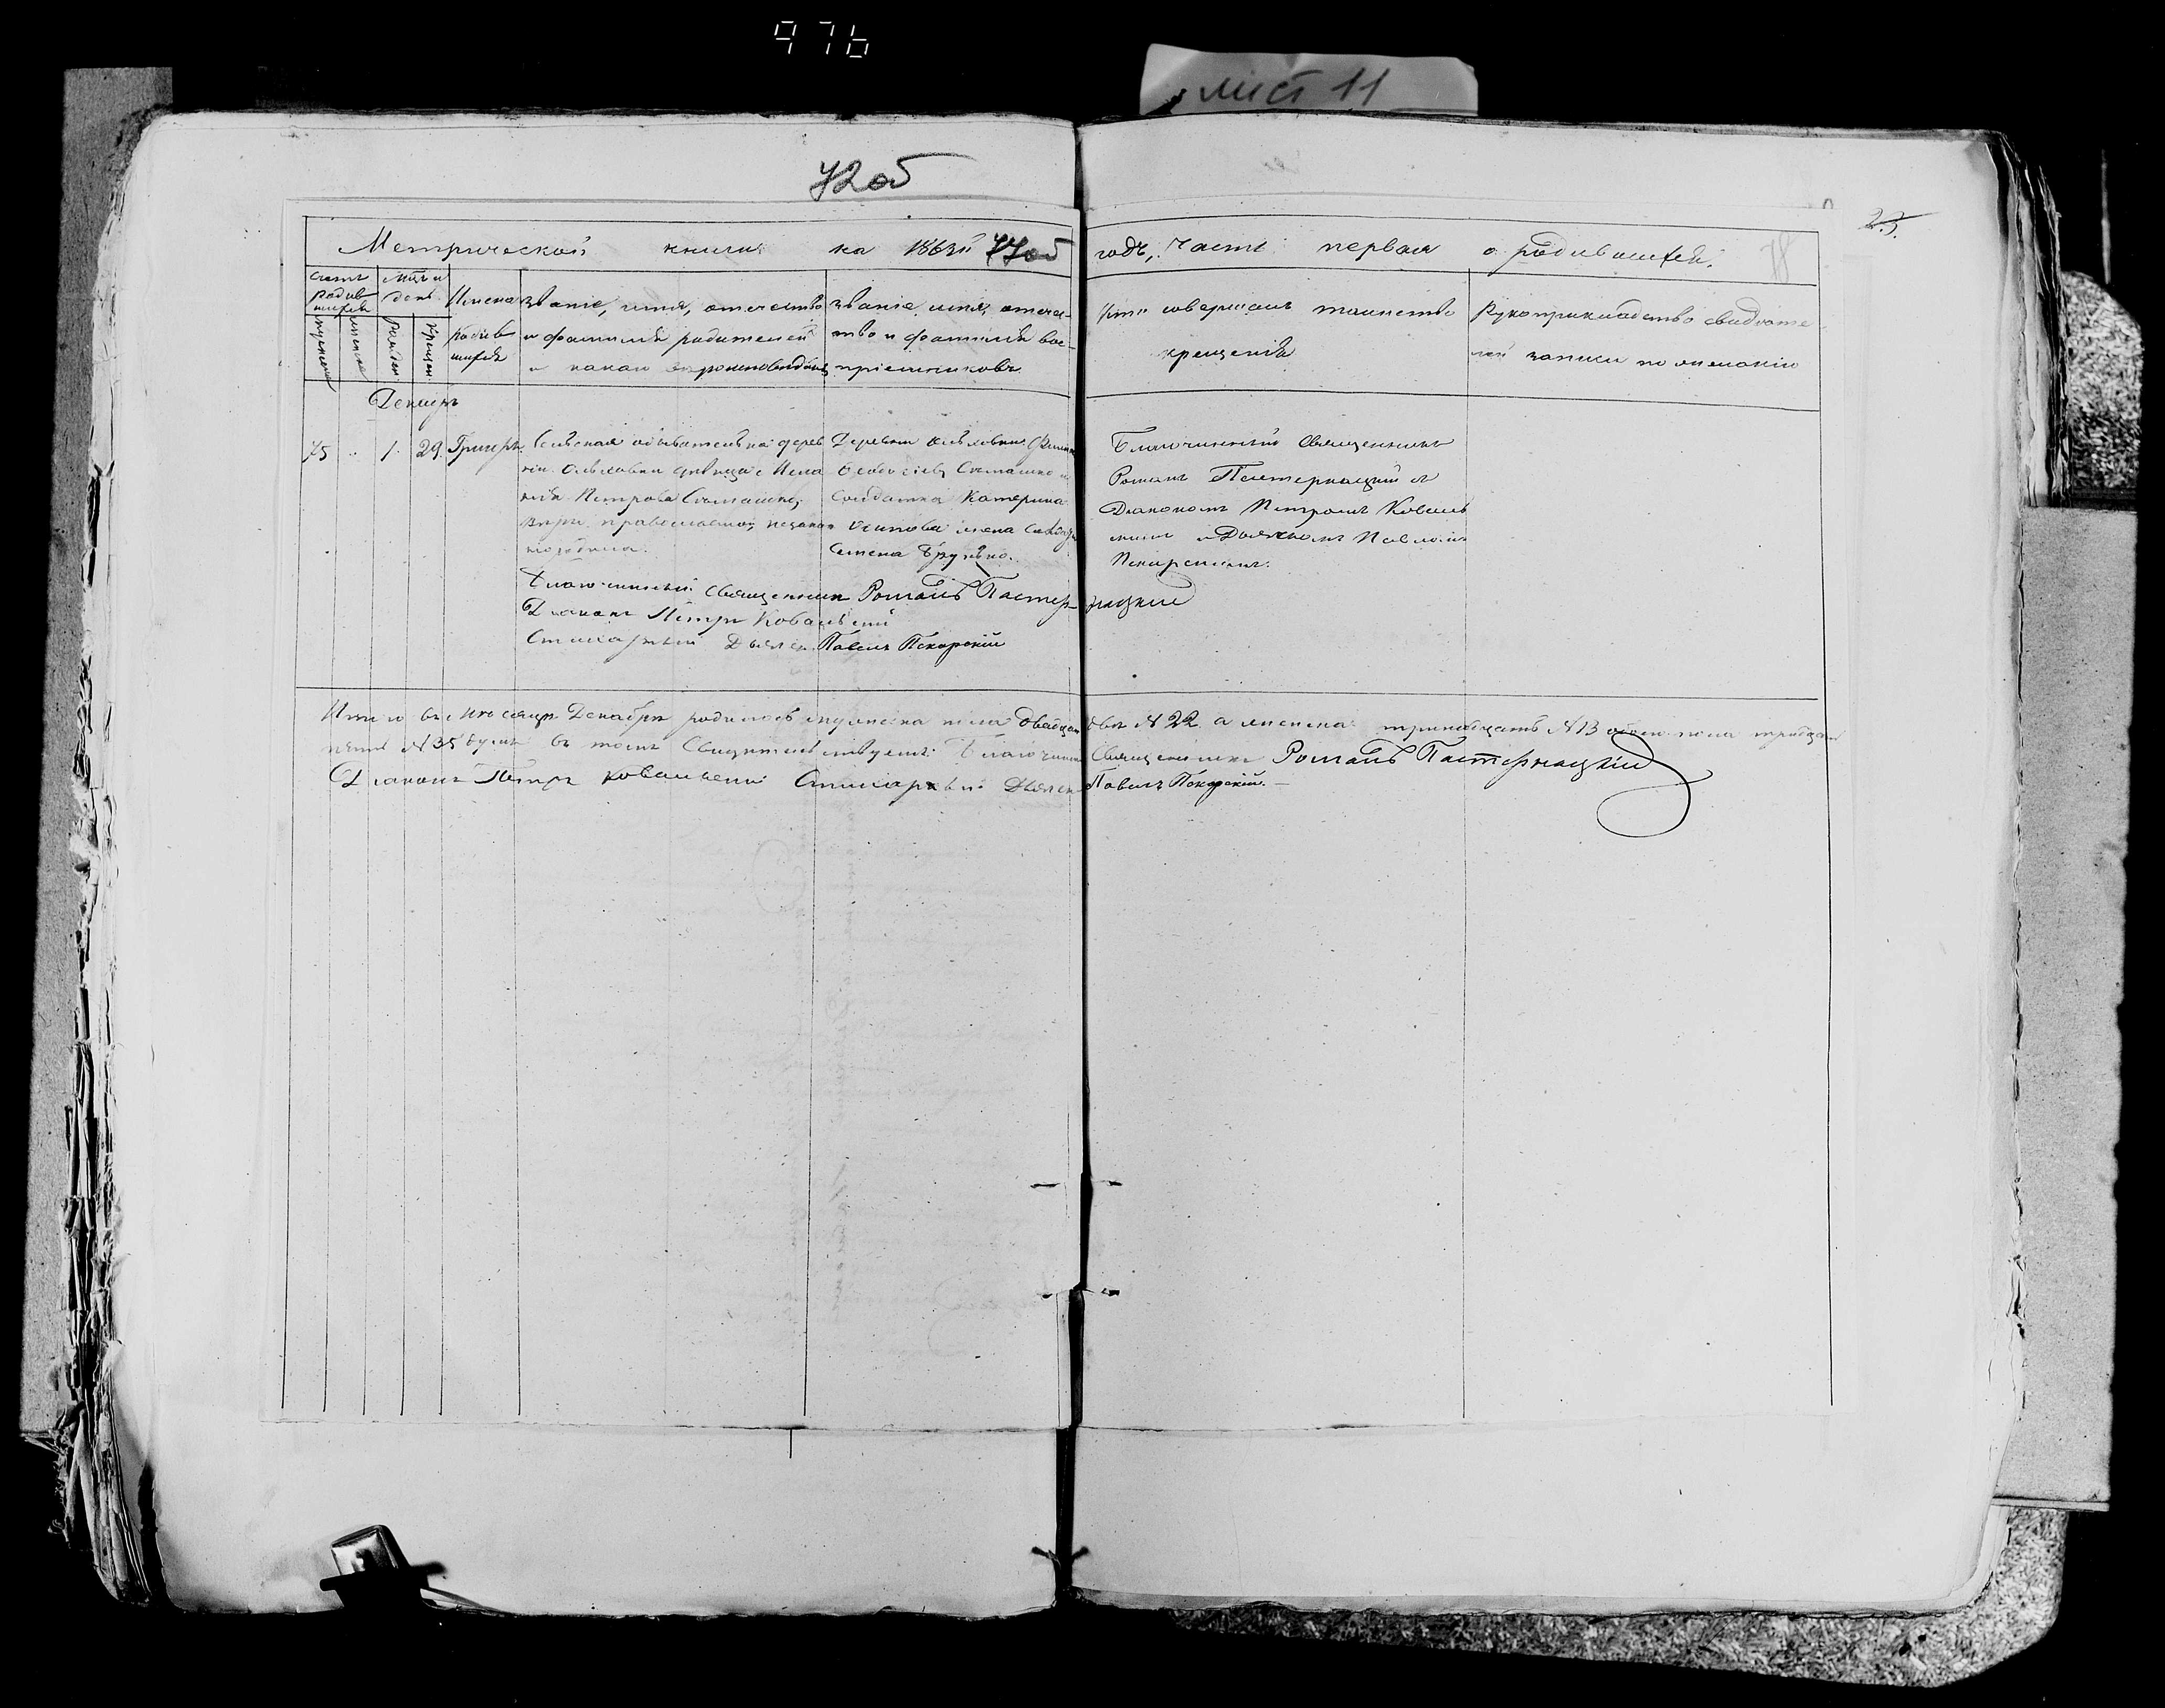 976
лист 11
72об
Метрической книги на 1863й 77об годъ, Часть первая о родившихся.
78
Счетъ родив
шихся
Мѣсяцъ и
день
Имена
родив
шихся
мужеска
женска
рожден
крещен
Званіе, имя, отечество
и фамилія родителей
и какого вѣроисповѣданія
Званіе, имя, отече-
ство и фамилія вос-
пріемниковъ
Кто совершалъ таинство
крещенія
Рукоприкладство свидѣте-
лей записи по желанію
Декабрь
75 1. 29. Григорій
Петрова
вѣры православной, незакон
Деревни
Солдатка Катерина
Осипова жена
Семена
Благочинный Священникъ
Романъ Пастернацкій съ
Діакономъ Петромъ Коваль
скимъ и Дьячкомъ Павломъ
Пекарскимъ.
Благочинный Священникъ Романъ Пастернацкій
Діаконъ Петръ Ковальскій
Стихарный Дьячек Павелъ Пекарскій
Итого въ мѣсяцѣ Декабрѣ родилось мужеска пола двадцать два № 22 а женска тринадцать № 13 обоего пола тридцать
пять № 35 душъ въ томъ Свидѣтельствуемъ: Благочинный Священникъ Романъ Пастернацкій
Діаконъ Петръ Ковальскій Стихарный Дьячек Павелъ Пекарскій.